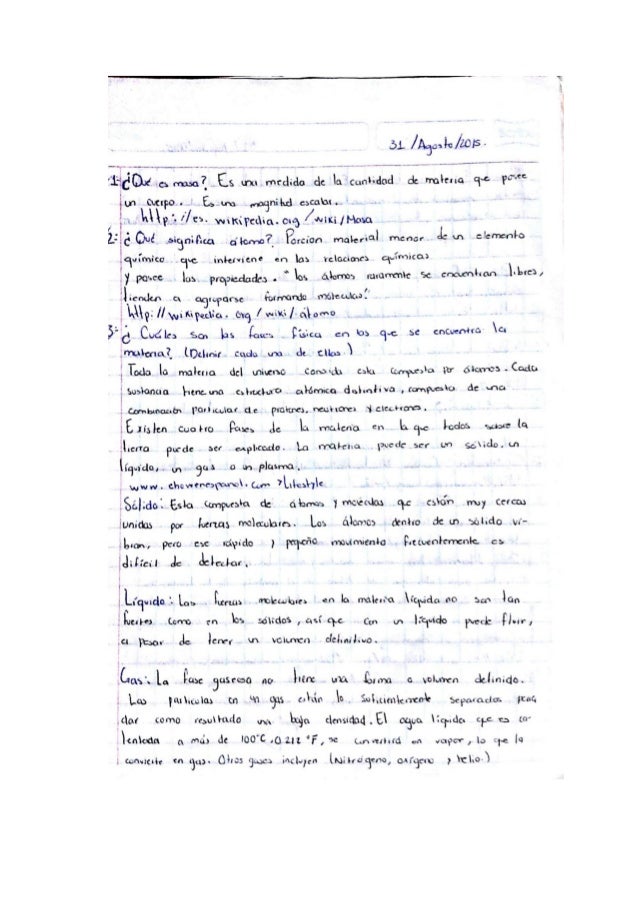 31 /Agosto/2015.
1- ¿Qué es masa? Es una medida de la cantidad de materia que posee
un cuerpo. Es una magnitud escalar.
http://es.wikipedia.org/wiki/Masa
2- ¿Qué significa átomo? Porcion material menor de un elemento
químico que interviene en las relaciones químicas
y posee las propiedades. "los átomos raramente se encuentran libres,
tienden a agruparse formando moléculas."
http://wikipedia.org/wiki/átomo
3- ¿Cuáles son las fases física en las que se encuentra la
materia? (Definir cada una de ellas.)
Toda la materia del universo esta compuesta por átomos. Cada
sustancia tiene una estructura atómica distintiva, compuesta de una
combinación particular de protones, neutrones y electrones.
Existen cuatro fases de la materia en la que todos sobre la
tierra puede ser explicado. La materia puede ser un sólido, un
líquido, un gas o un plasma.
www.ehowenespanol.com >Lifestyle
Sólido: Esta compuesta de átomos y moléculas que están muy cercas
unidas por fuerzas moleculares. Los átomos dentro de un sólido vi-
bran, pero ese rápido y pequeño movimiento frecuentemente es
difícil de detectar.
Líquido: Las fuerzas moleculares en la materia líquida no son tan
fuertes como en los sólidos, así que con un líquido puede fluir,
a pesar de tener un volumen definitivo.
Gas: La fase gaseosa no tiene una forma o volumen definido.
Las partículas en un gas están lo suficientemente separadas para
dar como resultado una baja densidad. El agua líquida que es ca-
lentada a más de 100°C, o 212 °F, se convertirá en vapor, lo que la
convierte en gas. Otros gases incluyen (Nitrógeno, oxígeno y helio.)